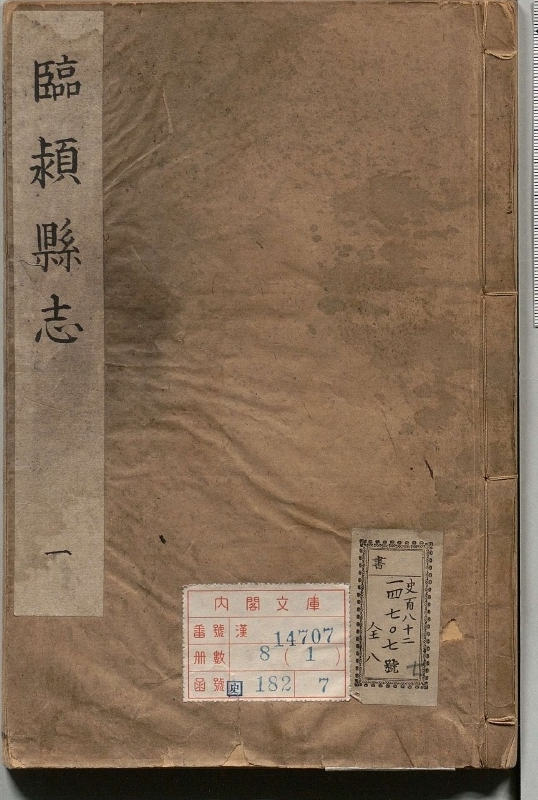 臨潁縣志
一
書
史百八十二
一四七〇七號
全八
七
内閣文庫
番號 漢 14707
册數 8 (1)
函號 史 182 7